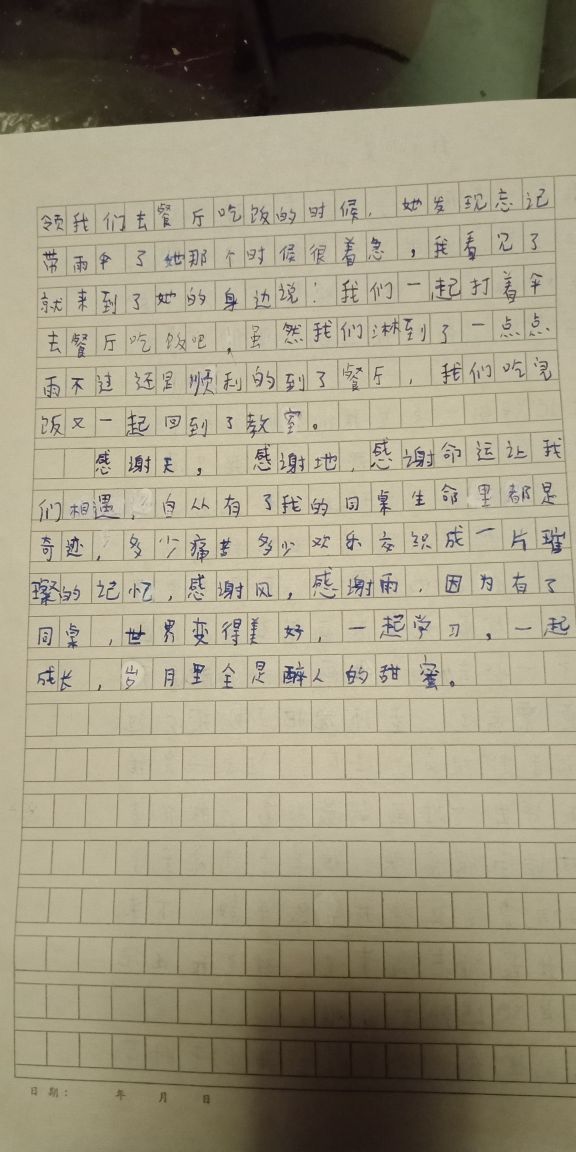 领我们去餐厅吃饭的时候，她发现忘记
带雨伞了她那个时候很着急，我看见了
就来到了她的身边说：我们一起打着伞
去餐厅吃饭吧，虽然我们淋到了一点点
雨不过还是顺利的到了餐厅，我们吃完
饭又一起回到了教室。
感谢天，感谢地，感谢命运让我
们相遇，自从有了我的同桌生命里都是
奇迹，多少痛苦多少欢乐交织成一片璀
璨的记忆，感谢风，感谢雨，因为有了
同桌，世界变得美好，一起学习，一起
成长，岁月里全是醉人的甜蜜。
日期： 年 月 日